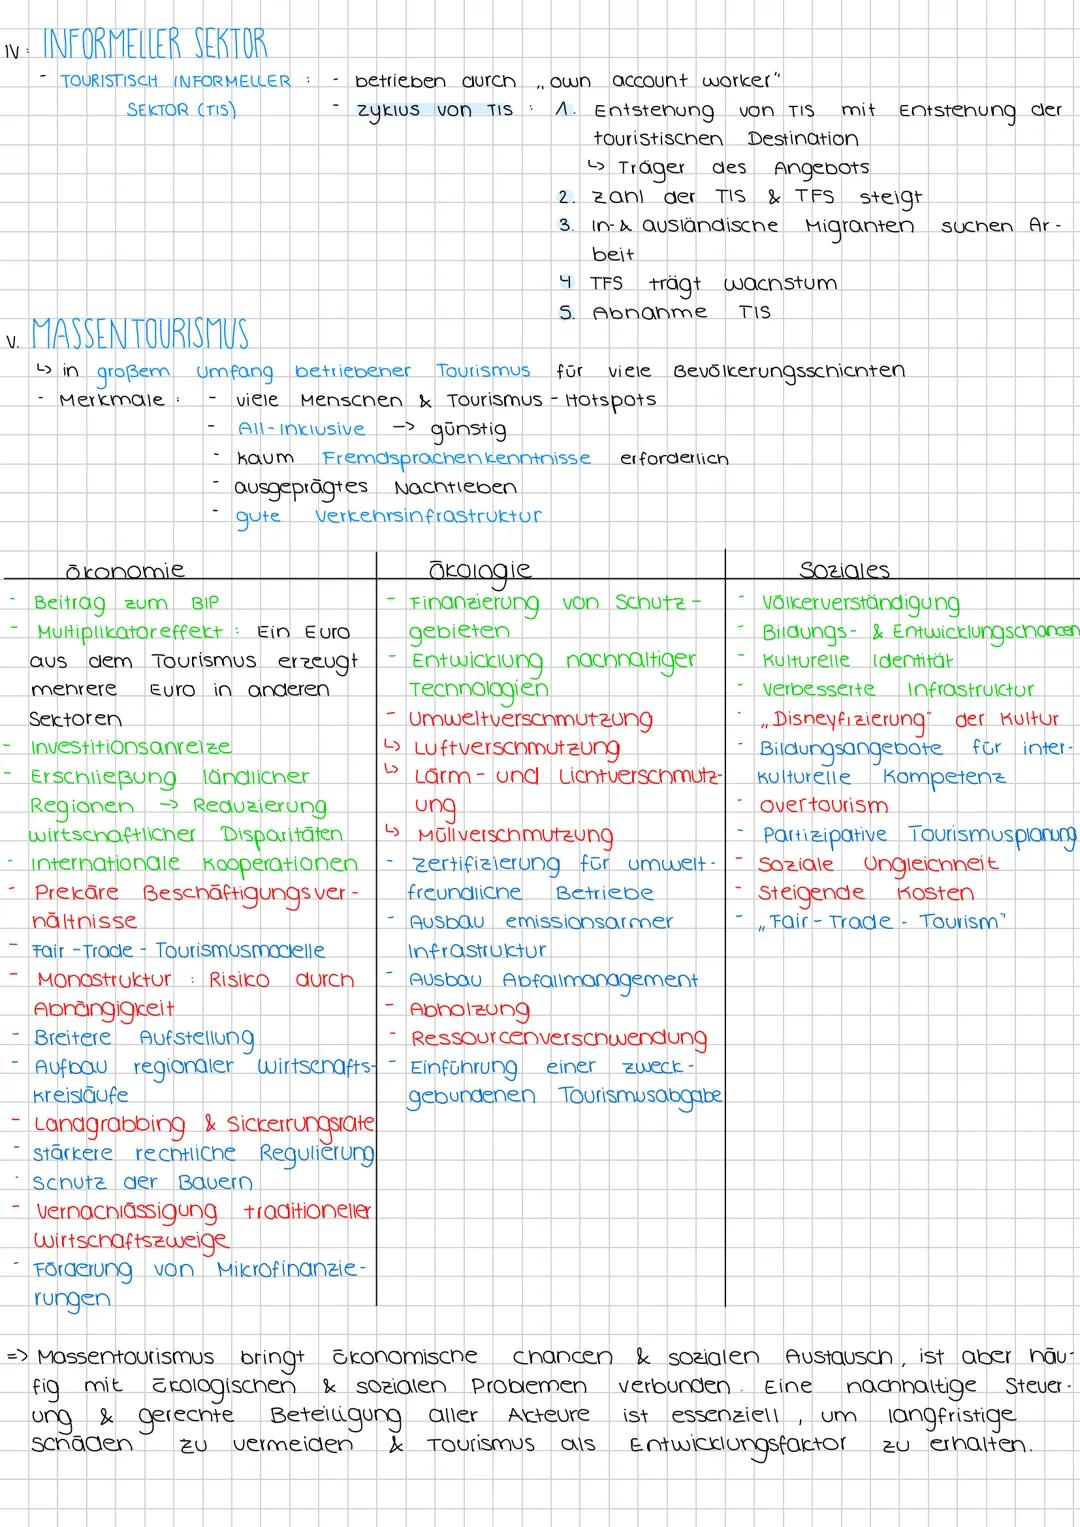 IV. INFORMELLER SEKTOR
- TOURISTISCH INFORMELLER : - betrieben durch „own account worker"
SEKTOR (TIS) - Zyklus von TIS : 1. Entstehung von TIS mit Entstehung der
touristischen Destination
↳ Träger des Angebots
2. Zahl der TIS & TFS steigt
3. In- & ausländische Migranten suchen Ar-
beit
4 TFS trägt Wachstum
5. Abnahme TIS
V. MASSENTOURISMUS
↳ in großem Umfang betriebener Tourismus für viele Bevölkerungsschichten
- Merkmale : - viele Menschen & Tourismus-Hotspots
- All-Inklusive -> günstig
- kaum Fremdsprachenkenntnisse erforderlich
- ausgeprägtes Nachtleben
- gute Verkehrsinfrastruktur
Ökonomie
- Beitrag zum BIP
- Multiplikatoreffekt : Ein Euro
aus dem Tourismus erzeugt
mehrere Euro in anderen
Sektoren
- Investitionsanreize
- Erschließung ländlicher
Regionen -> Reduzierung
wirtschaftlicher Disparitäten
- Internationale Kooperationen
- Prekäre Beschäftigungsver-
hältnisse
- Fair-Trade-Tourismusmodelle
- Monostruktur : Risiko durch
Abhängigkeit
- Breitere Aufstellung
- Aufbau regionaler Wirtschafts-
kreisläufe
- Landgrabbing & Sickerrungsrate
- stärkere rechtliche Regulierung
- Schutz der Bauern
- Vernachlässigung traditioneller
Wirtschaftszweige
- Förderung von Mikrofinanzie-
rungen
Ökologie
- Finanzierung von Schutz-
gebieten
- Entwicklung nachhaltiger
Technologien
- Umweltverschmutzung
↳ Luftverschmutzung
↳ Lärm- und Lichtverschmutz-
ung
↳ Müllverschmutzung
- Zertifizierung für umwelt-
freundliche Betriebe
- Ausbau emissionsarmer
Infrastruktur
- Ausbau Abfallmanagement
- Abholzung
- Ressourcenverschwendung
- Einführung einer zweck-
gebundenen Tourismusabgabe
Soziales
- Völkerverständigung
- Bildungs- & Entwicklungschancen
- Kulturelle Identität
- Verbesserte Infrastruktur
- „Disneyfizierung" der Kultur
- Bildungsangebote für inter-
kulturelle Kompetenz
- Overtourism
- Partizipative Tourismusplanung
- Soziale Ungleichheit
- Steigende Kosten
- „Fair-Trade-Tourism"
=> Massentourismus bringt ökonomische Chancen & sozialen Austausch, ist aber häu-
fig mit ökologischen & sozialen Problemen verbunden. Eine nachhaltige Steuer-
ung & gerechte Beteiligung aller Akteure ist essenziell, um langfristige
Schäden zu vermeiden & Tourismus als Entwicklungsfaktor zu erhalten.